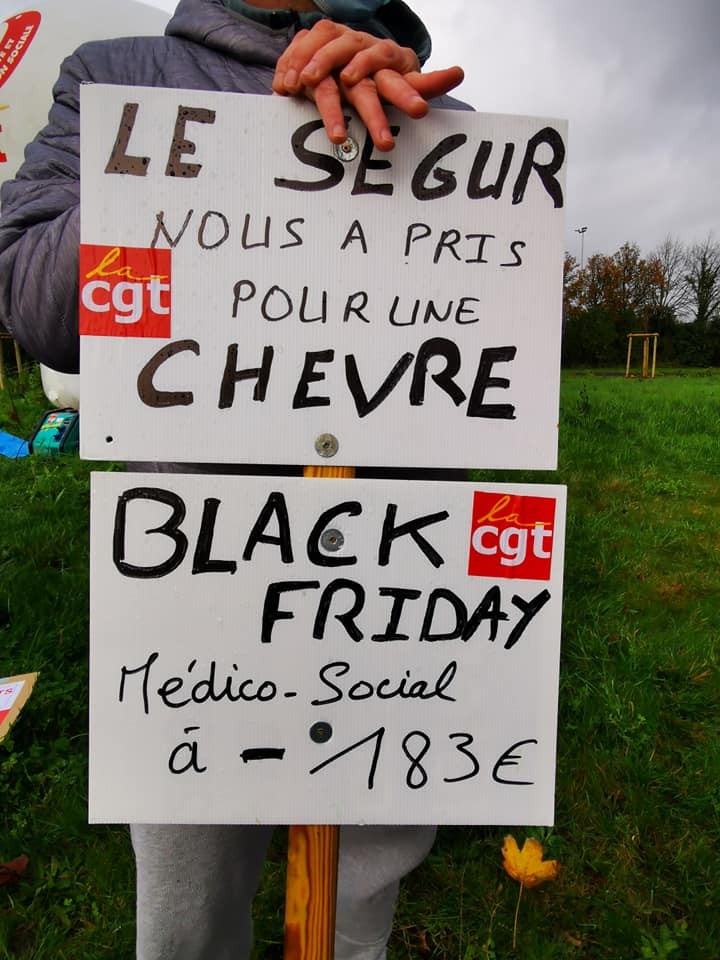 TÉ ET
ON SOCIALE
LE SEGUR
NOUS A PRIS
la
cgt
POUR UNE
CHEVRE
BLACK
la
cgt
FRIDAY
Médico-Social
à - 183€